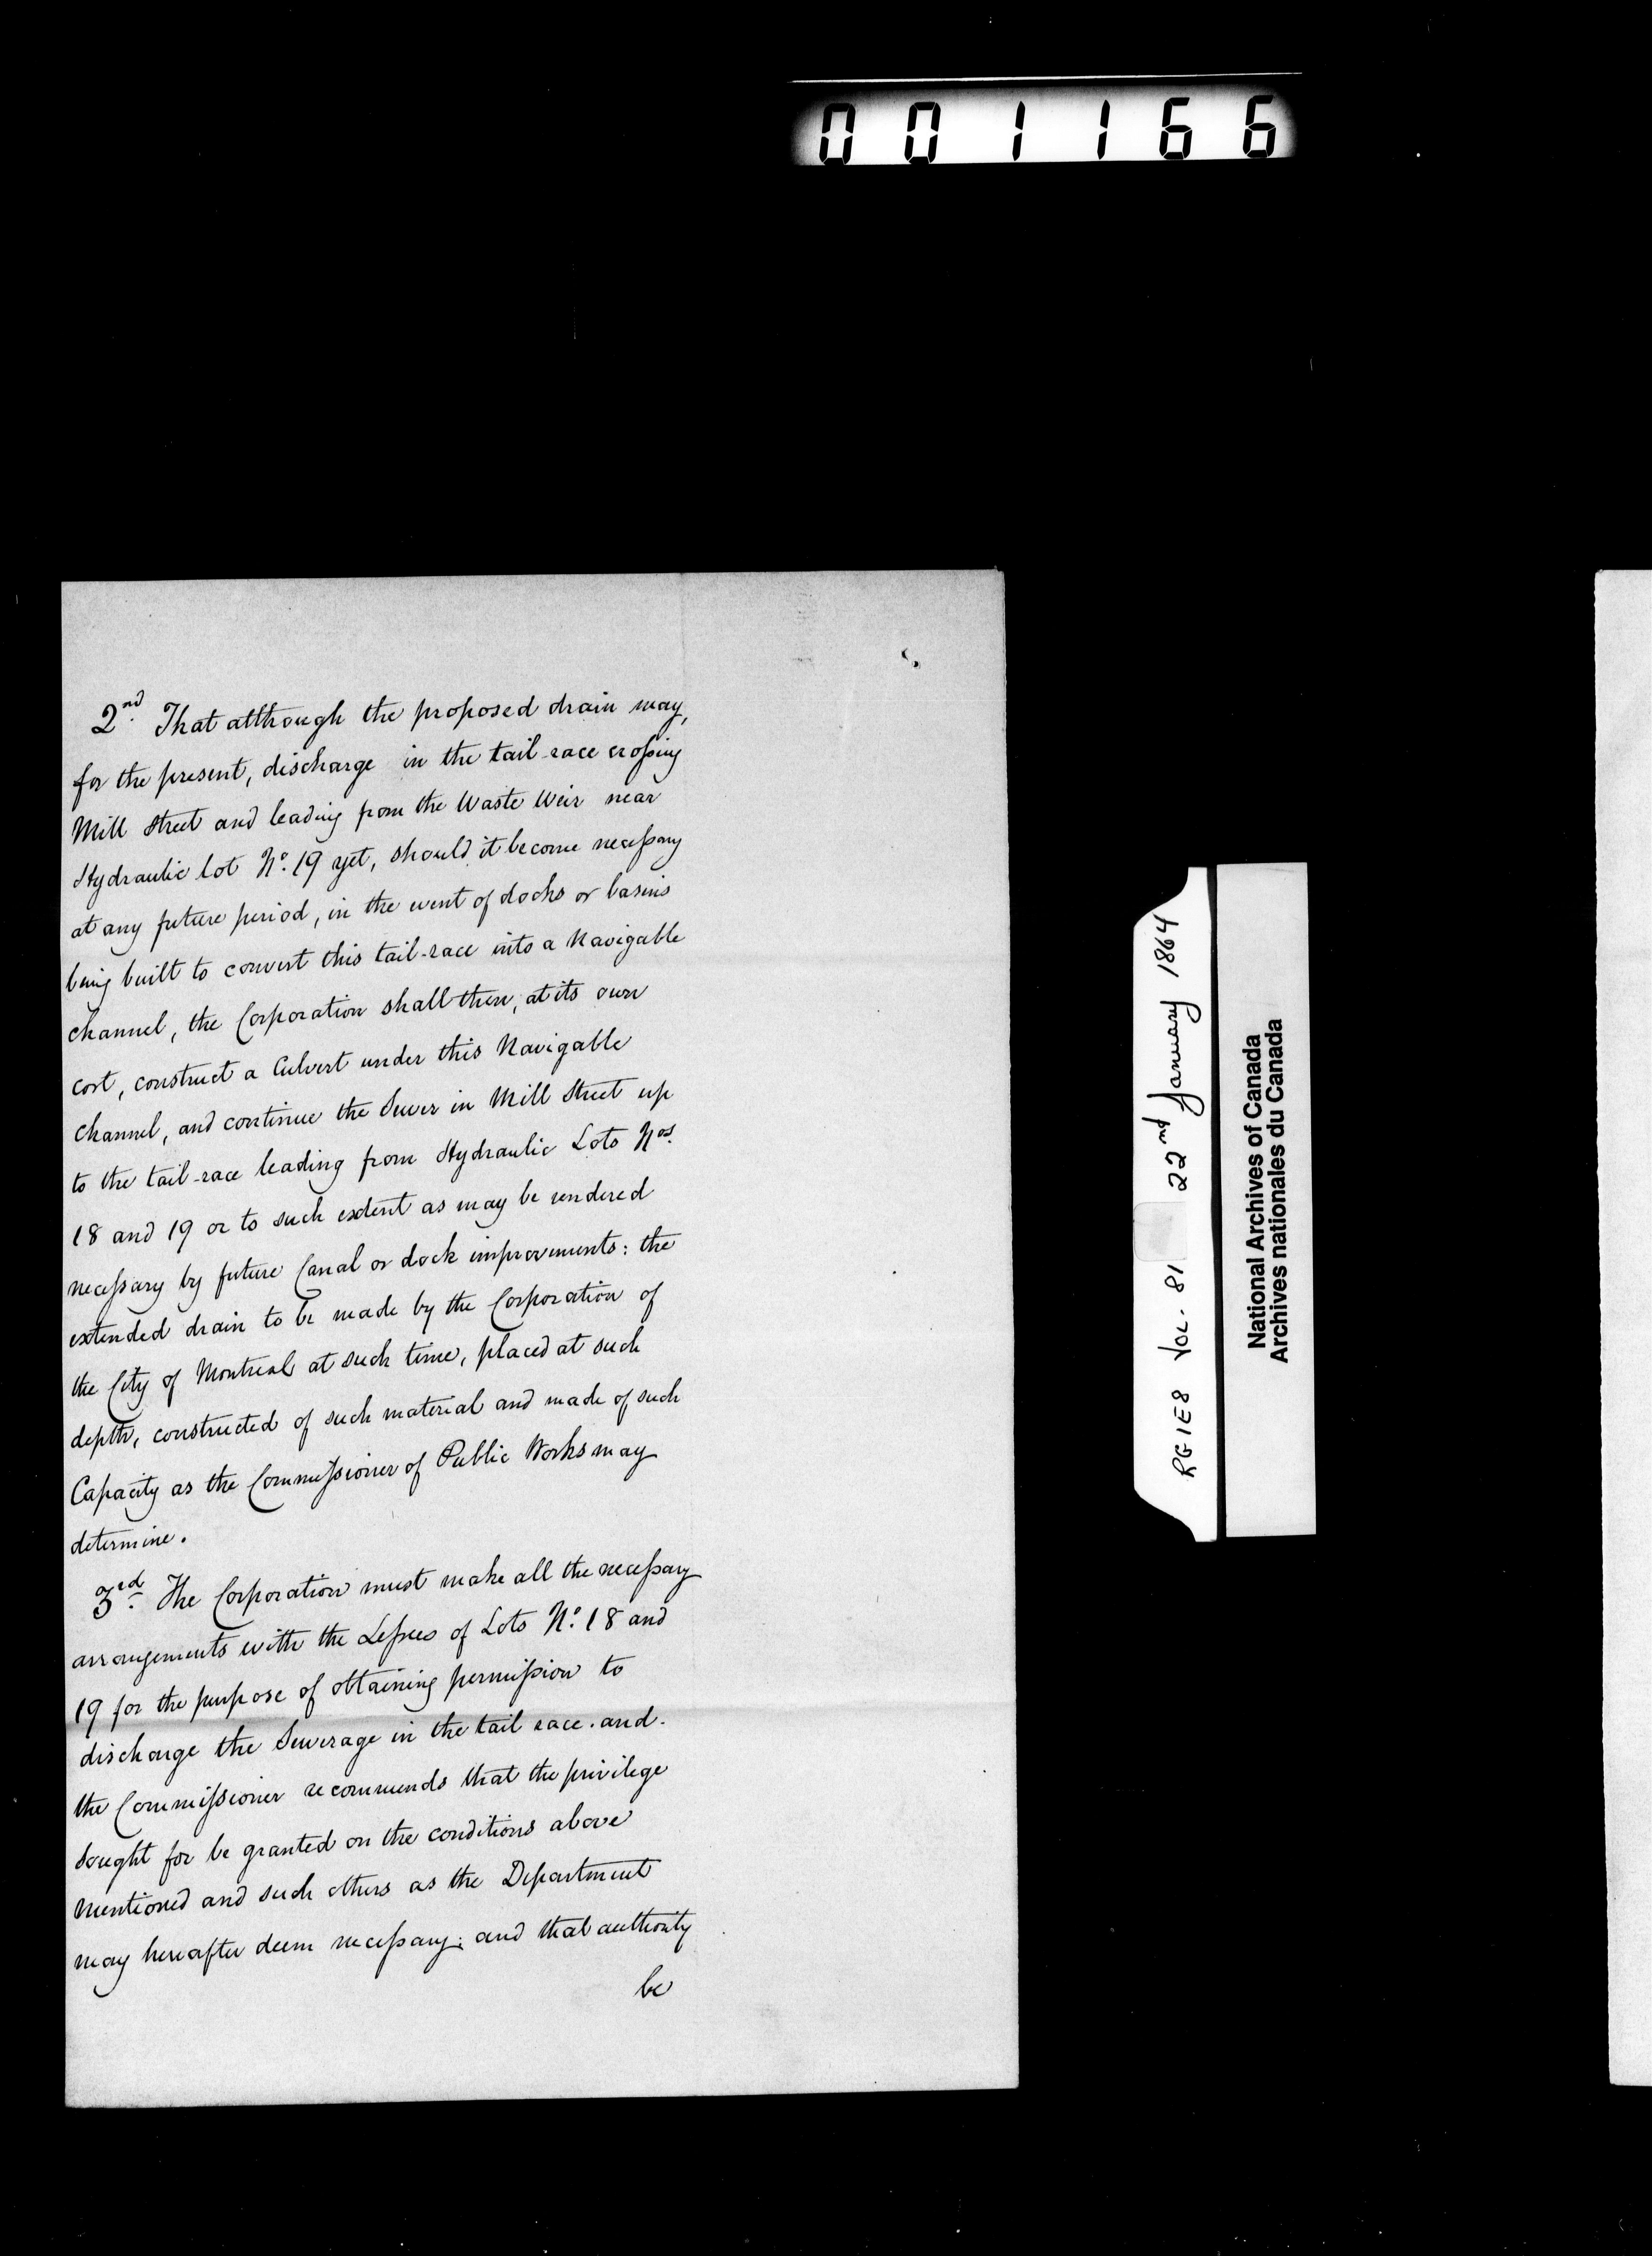 001166
2nd. That although the proposed drain may,
for the present, discharge in the tail-race crossing
Mill Street and leading from the Waste Weir near
Hydraulic lot No. 19 yet, should it become necessary
at any future period, in the event of docks or basins
being built to convert this tail-race into a Navigable
channel, the Corporation shall then, at its own
cost, construct a Culvert under this Navigable
channel, and continue the Sewer in Mill Street up
to the tail-race leading from Hydraulic Lots Nos.
18 and 19 or to such extent as may be rendered
necessary by future Canal or dock improvements: the
extended drain to be made by the Corporation of
the City of Montreal at such time, placed at such
depth, constructed of such material and made of such
Capacity as the Commissioner of Public Works may
determine.
3rd. The Corporation must make all the necessary
arrangements with the Lessees of Lots No. 18 and
19 for the purpose of obtaining permission to
discharge the Sewerage in the tail race. and.
the Commissioner recommends that the privilege
sought for be granted on the conditions above
mentioned and such others as the Department
may hereafter deem necessary; and that authority
be
RG1E8 VOL. 81 22nd January 1864
National Archives of Canada
Archives nationales du Canada